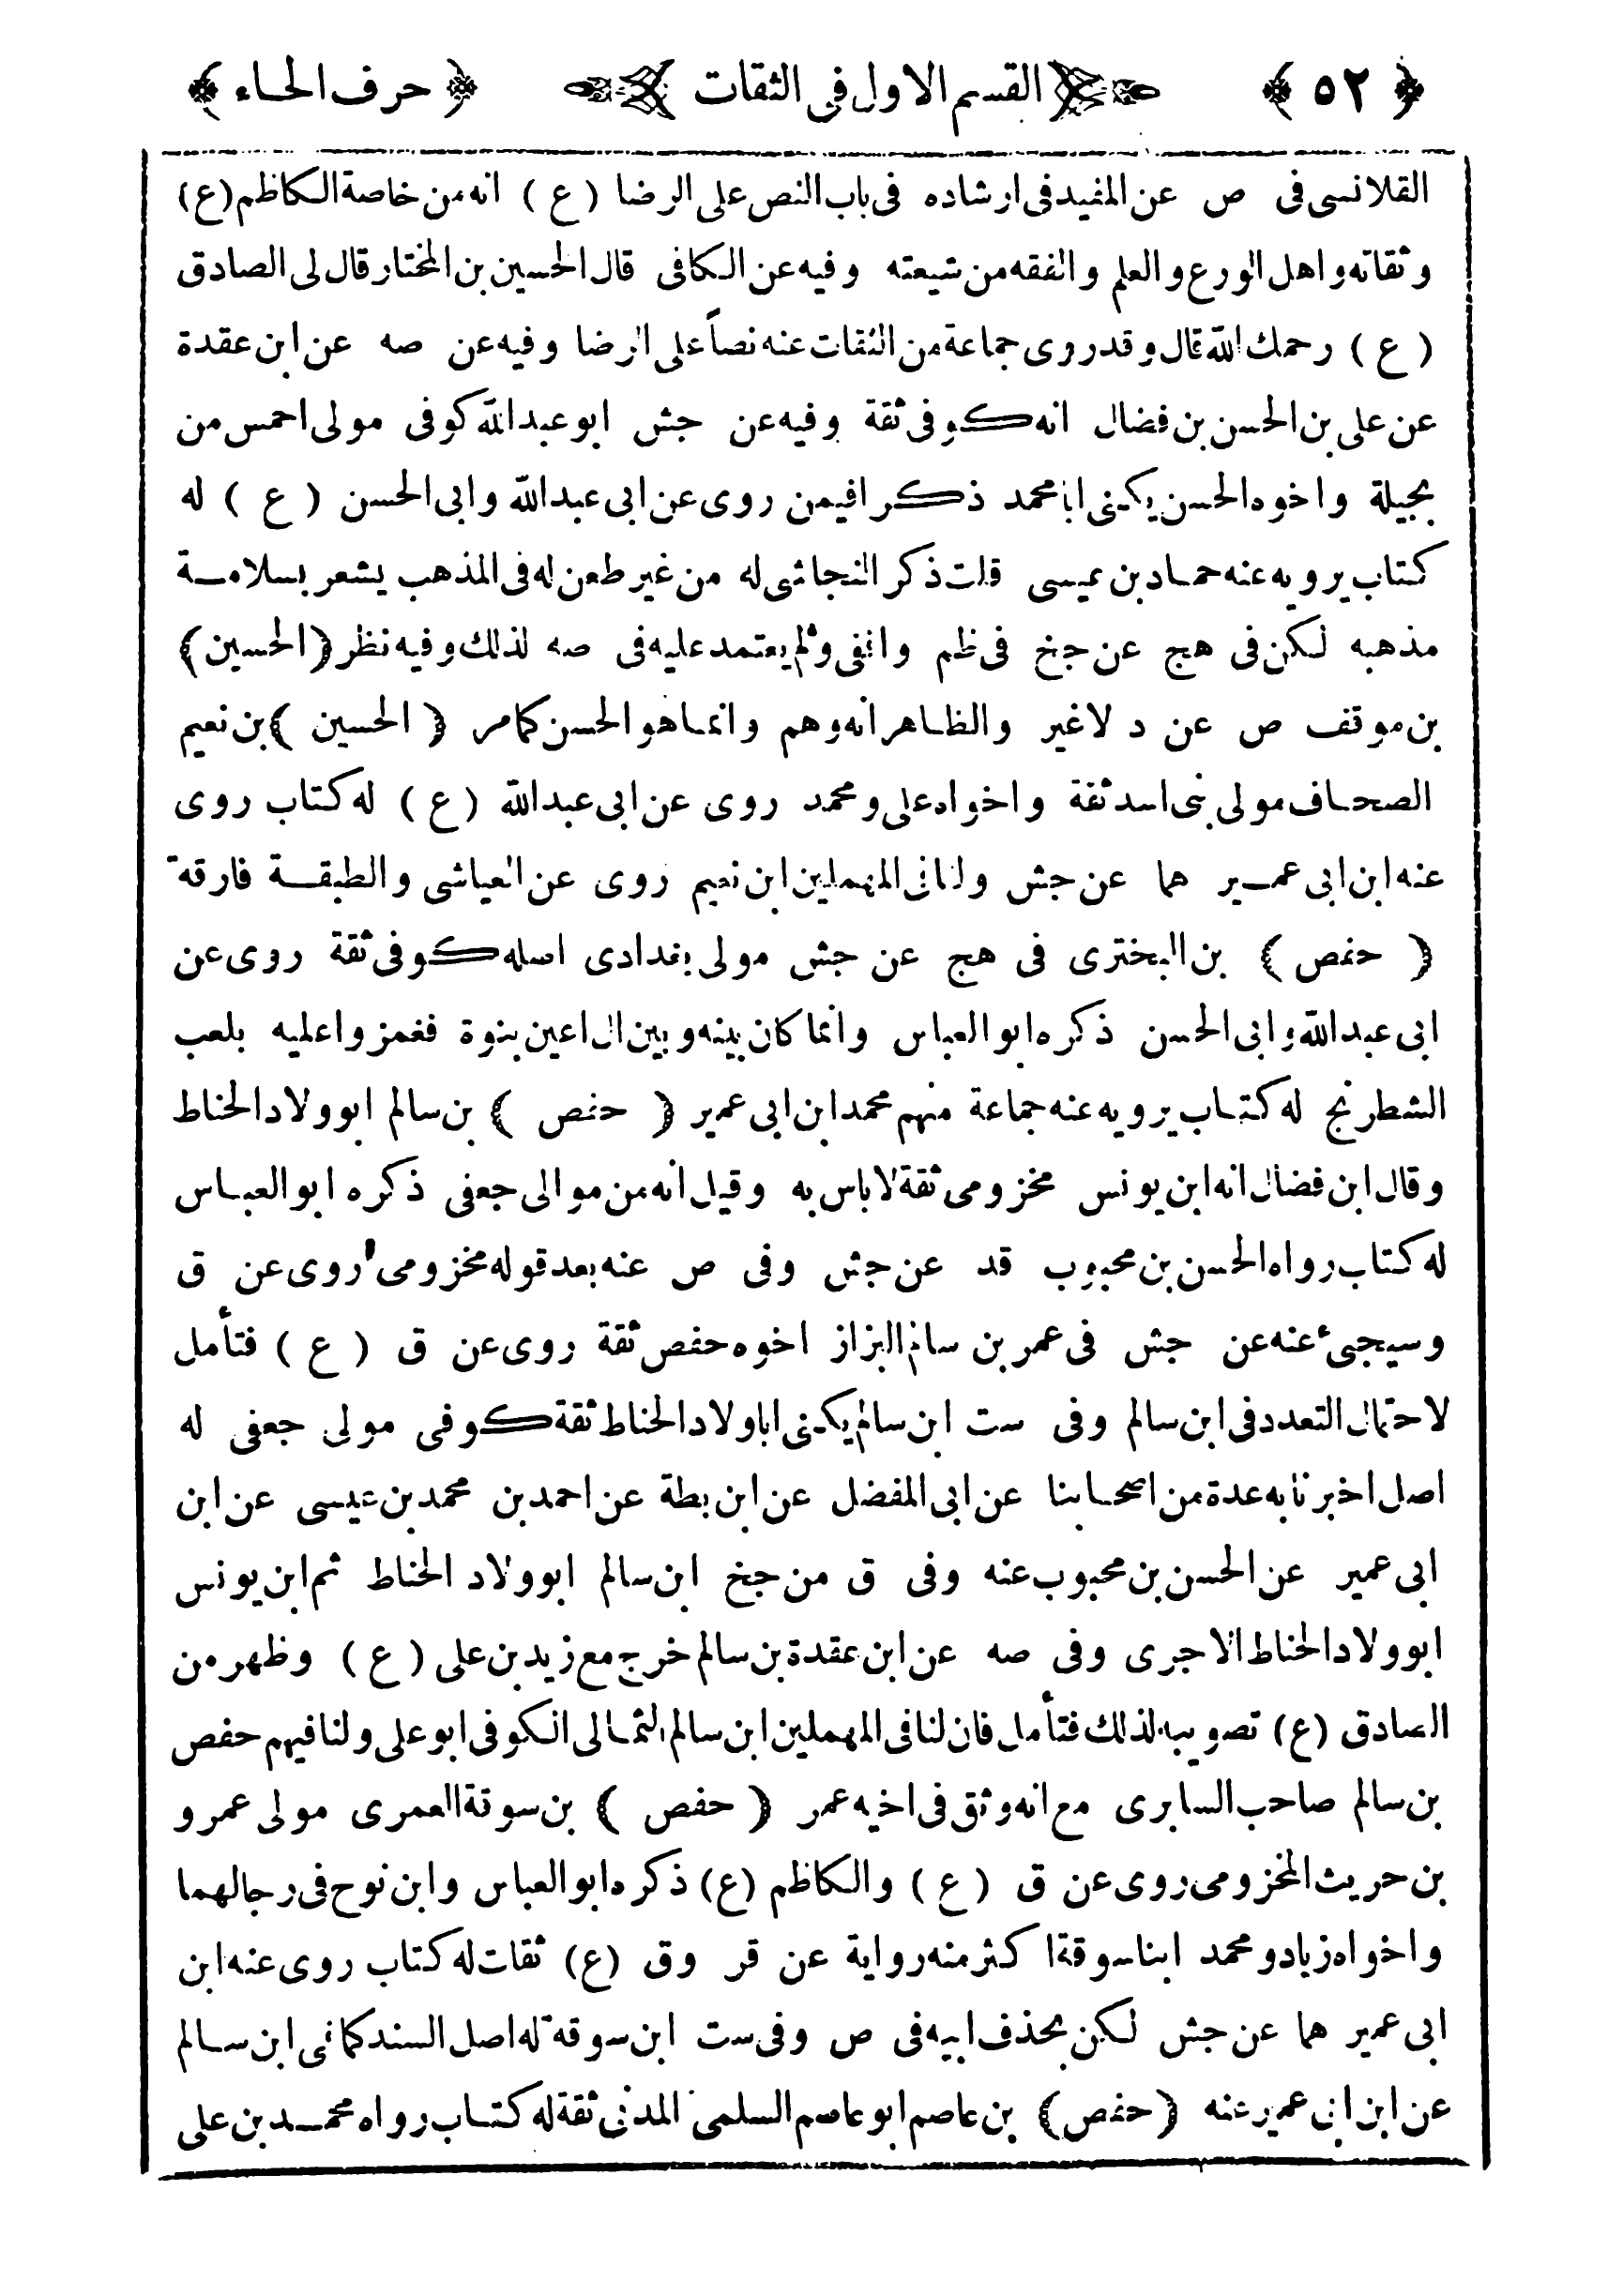 ﴿ ٥٢ ﴾ القسم الاول فى الثقات ﴿ حرف الحاء ﴾
القلانسى فى ص عن المفيد فى ارشاده فى باب النص على الرضا ( ع ) انه من خاصة الكاظم (ع)
وثقاته واهل الورع والعلم والفقه من شيعته وفيه عن الكافى قال الحسين بن المختار قال لى الصادق
( ع ) رحمك الله قال وقد روى جماعة من الثقات عنه نصاً على الرضا وفيه عن صه عن ابن عقدة
عن على بن الحسن بن فضال انه كوفى ثقة وفيه عن جش ابو عبد الله كوفى مولى احمس من
بجيلة واخوه الحسن يكنى ابا محمد ذكرا فيمن روى عن ابى عبد الله وابى الحسن ( ع ) له
كتاب يرويه عنه حماد بن عيسى قلت ذكر النجاشى له من غير طعن له فى المذهب يشعر بسلامة
مذهبه لكن فى هج عن جخ فى ظم واقفى ولم يعتمد عليه فى صه لذلك وفيه نظر ﴿ الحسين ﴾
بن موقف ص عن د لا غير والظاهر انه وهم وانما هو الحسن كما مر ﴿ الحسين ﴾ بن نعيم
الصحاف مولى بنى اسد ثقة واخواه على ومحمد روى عن ابى عبد الله ( ع ) له كتاب روى
عنه ابن ابى عمير هما عن جش ولنا فى المهملين ابن نعيم روى عن العياشى والطبقة فارقة
﴿ حفص ﴾ بن البخترى فى هج عن جش مولى بغدادى اصله كوفى ثقة روى عن
ابى عبد الله وابى الحسن ذكره ابو العباس وانما كان بينه وبين ال اعين بنوة فغمزوا عليه بلعب
الشطرنج له كتاب يرويه عنه جماعة منهم محمد ابن ابى عمير ﴿ حفص ﴾ بن سالم ابو ولاد الحناط
وقال ابن فضال انه ابن يونس مخزومى ثقة لا باس به وقيل انه من موالى جعفى ذكره ابو العباس
له كتاب رواه الحسن بن محبوب قد عن جش وفى ص عنه بعد قوله مخزومى روى عن ق
وسيجىء عنه عن جش فى عمر بن سالم البزاز اخوه حفص ثقة روى عن ق ( ع ) فتأمل
لاحتمال التعدد فى ابن سالم وفى ست ابن سالم يكنى ابا ولاد الحناط ثقة كوفى مولى جعفى له
اصل اخبرنا به عدة من اصحابنا عن ابى المفضل عن ابن بطة عن احمد بن محمد بن عيسى عن ابن
ابى عمير عن الحسن بن محبوب عنه وفى ق من جخ ابن سالم ابو ولاد الحناط ثم ابن يونس
ابو ولاد الحناط الاجرى وفى صه عن ابن عقدة بن سالم خرج مع زيد بن على ( ع ) وظهر من
الصادق (ع) تصويبه لذلك فتأمل فان لنا فى المهملين ابن سالم الثمالى الكوفى ابو على ولنا فيهم حفص
بن سالم صاحب السابرى مع انه وثق فى اخيه عمر ﴿ حفص ﴾ بن سوقة العمرى مولى عمرو
بن حريث المخزومى روى عن ق ( ع ) والكاظم (ع) ذكره ابو العباس وابن نوح فى رجالهما
واخواه زياد ومحمد ابنا سوقة اكثر منه رواية عن قر وق (ع) ثقات له كتاب روى عنه ابن
ابى عمير هما عن جش لكن بحذف ابيه فى ص وفى ست ابن سوقة له اصل السند كما فى ابن سالم
عن ابن ابى عمير عنه ﴿ حفص ﴾ بن عاصم ابو عاصم السلمى المدنى ثقة له كتاب رواه محمد بن على